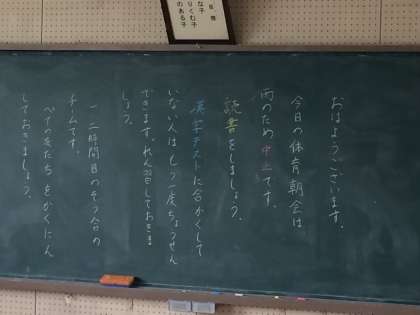 な子
りくむ子
のある子
おはようございます。
今日の体育朝会は
雨のため中止です。
読書をしましょう。
漢字テストに合かくして
いない人はもう一度ちょうせん
できます。れん習しておきま
しょう。
一、二時間目のそう合の
チームです。
ペアの友だちをかくにん
しておきましょう。